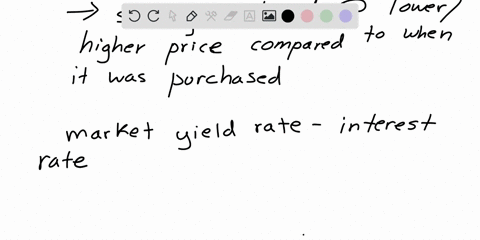 → s lower/
higher price compared to when
it was purchased
market yield rate - interest
rate